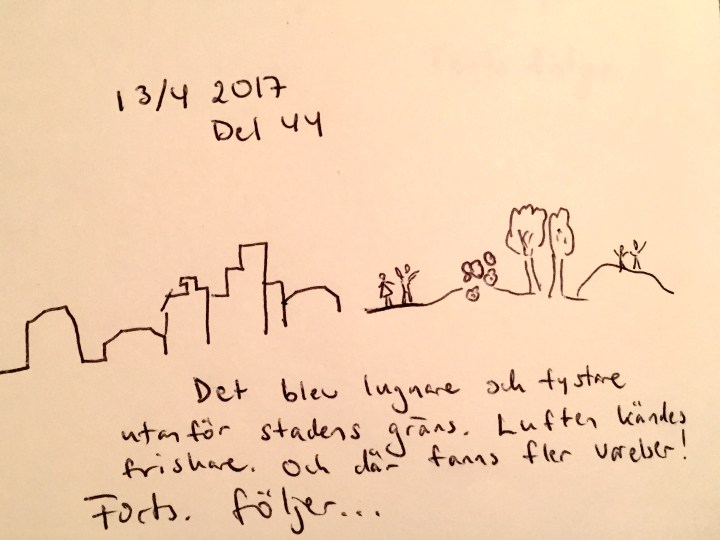 13/4 2017
Del 44
Det blev lugnare och tystare
utanför stadens gräns. Luften kändes
friskare. Och där fanns fler vareber!
Forts. följer...